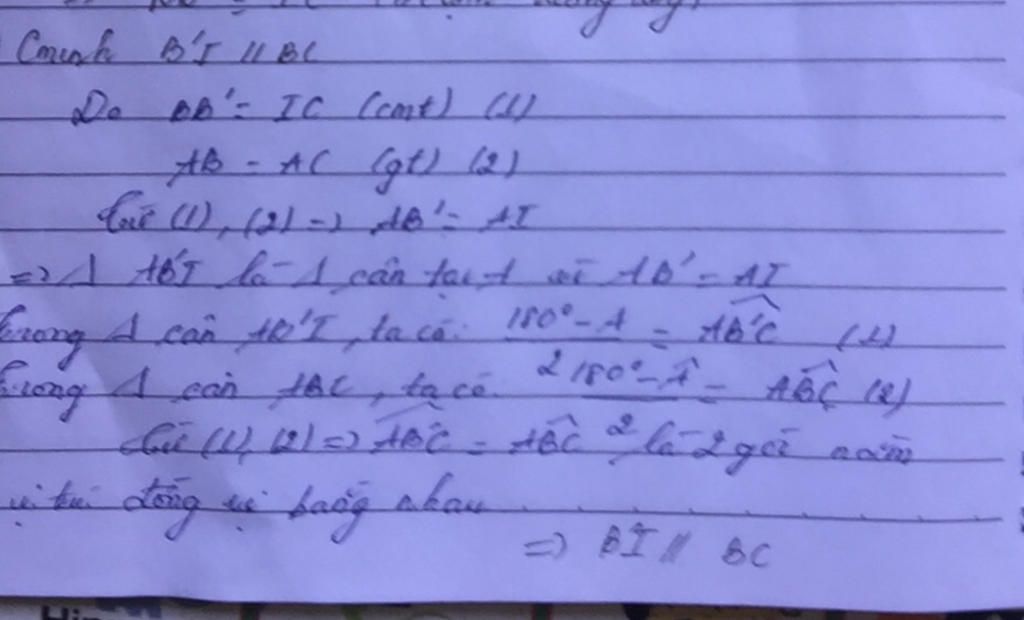 Cminh B'I // BC
Do BB' = IC (cmt) (1)
AB = AC (gt) (2)
Từ (1), (2) => AB' = AI
=> Δ AB'I là Δ cân tại A vì AB' = AI
Trong Δ cân AB'I, ta có: 180° - A / 2 = AB'C (1)
Trong Δ cân ABC, ta có 180° - Â / 2 = ABC (2)
Từ (1), (2) => AB'C = ABC là 2 góc nằm
vị trí đồng vị bằng nhau
=> B'I // BC
Hip